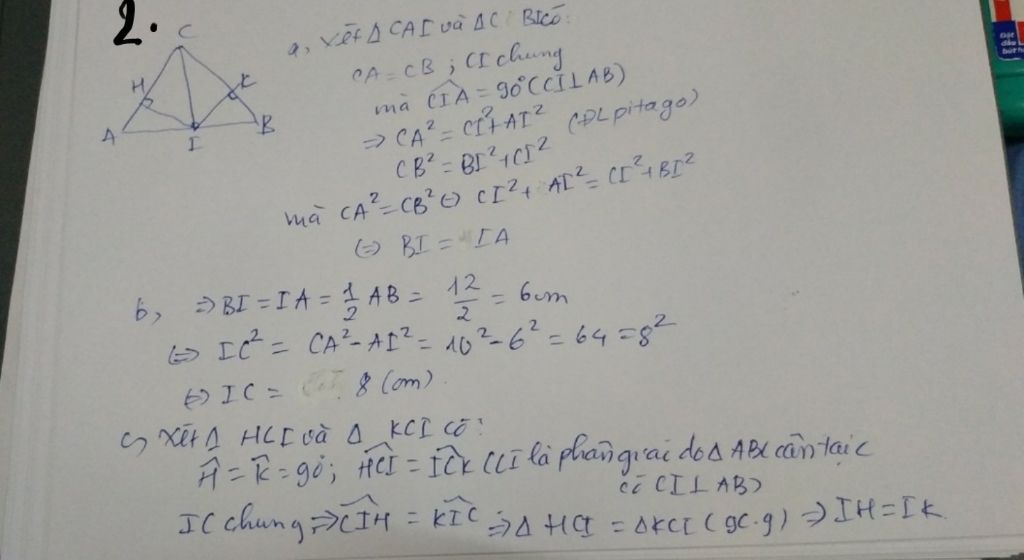 2.
C
H
K
A
I
B
a, xét Δ CAI và Δ C BI có:
CA = CB ; CI chung
mà CIA = 90° (CI ⊥ AB)
⇒ CA² = CI² + AI²
CB² = BI² + CI² (ĐL pitago)
mà CA² = CB² ⇔ CI² + AI² = CI² + BI²
⇔ BI = IA
b, ⇒ BI = IA = 1/2 AB = 12/2 = 6cm
⇔ IC² = CA² - AI² = 10² - 6² = 64 = 8²
⇔ IC = 8 (cm)
c, xét Δ HCI và Δ KCI có:
Ĥ = K̂ = 90; HCI = ICK (CI là phân giác do Δ ABC cân tại C
có CI ⊥ AB)
IC chung ⇒ CIH = KIC ⇒ Δ HCI = ΔKCI (gc.g) ⇒ IH = IK